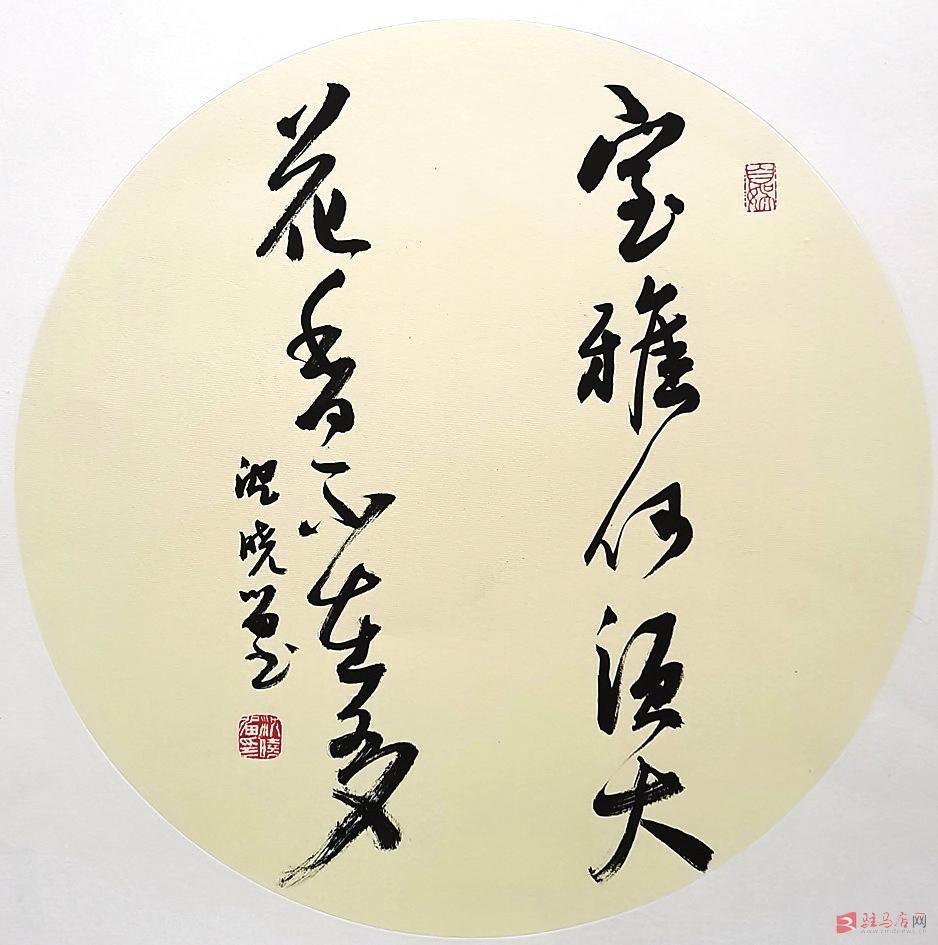 室雅何须大
花香不在多
沈晓
驻马店网